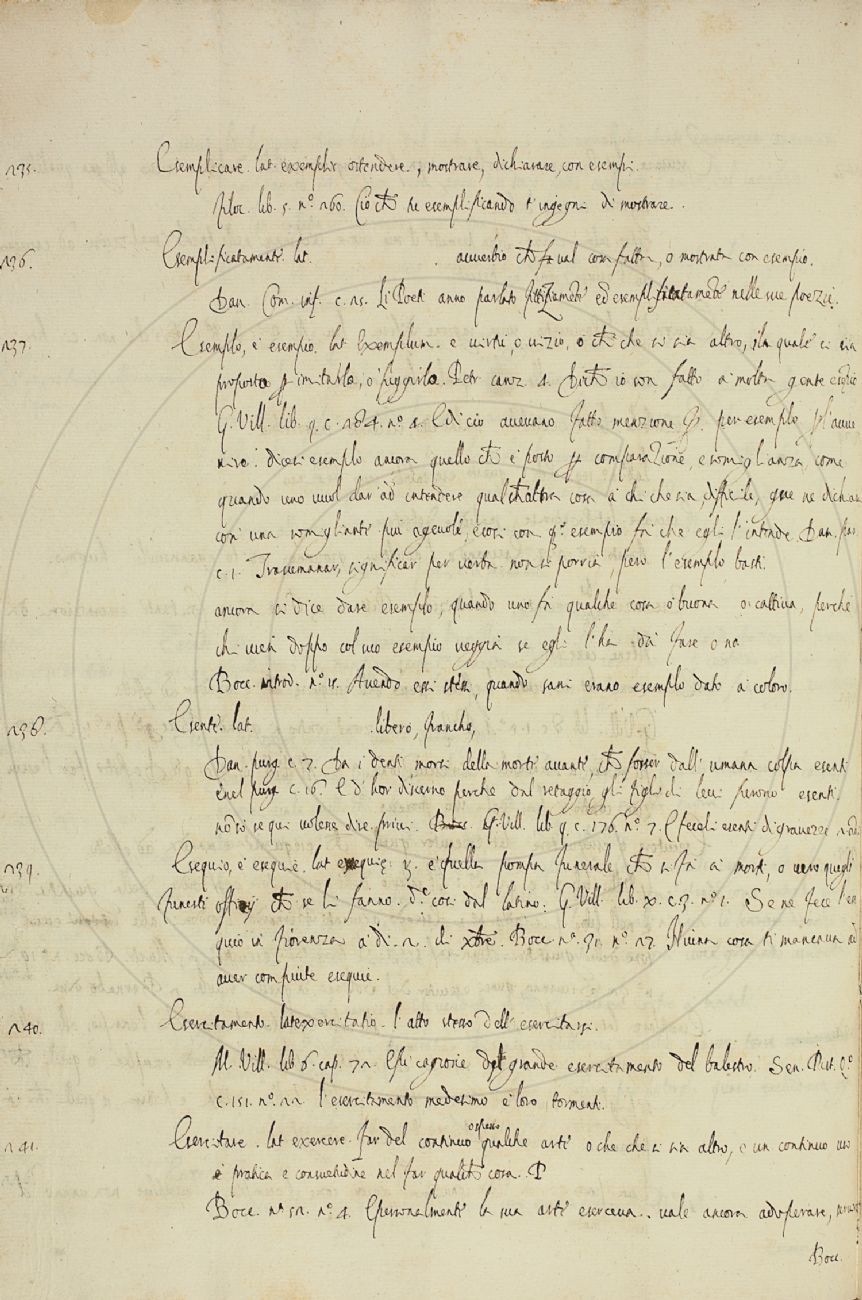 135. Esemplicare. lat. exemplis ostendere, mostrare, dichiarare, con esempi.
Filoc. lib. 5. n.º 260. Ciò che tu esemplificando t'ingegni di mostrare.
136. Esemplificatamente. lat. avverbio che val con fatta, o mostrata con esempio.
Dan. Com. inf. c. 15. Li Poeti anno parlato ed esemplificatamente nelle sue poezie.
137. Esemplo, e esempio. lat. Exemplum. e virtù, o vizio, o che che si sia altro, il quale ci sia
proposta p imitarla, o fuggirla. Petr. canz. 1. Di che io son fatto a molta gente esepio
G. Vill. lib. 9. c. 184. n.º 1. E di ciò avevano fatto menzione per esemplo, p l'avve
nire. dicesi esemplo ancora quello che è posto p comparazione, e somiglianza, come
quando uno vuol dar ad intendere qualche altra cosa a chi che sia, difficile, ne dichiar
con una somigliante più agevole, e così con q.º esempio fa che egli l'intende. Dan. par.
c. 1. Trasumanar, significar per verba non si porria, però l'esemplo basti.
ancora si dice dare esemplo, quando uno fa qualche cosa o buona o cattiva, perchè
chi vien doppo col suo esempio veggia se egli l'ha da fare o no
Bocc. introd. n.º 15. Avendo essi stessi, quando sani erano esemplo dato a coloro.
138. Esente. lat. libero, francho,
Dan. purg. c. 7. Da i denti morsi della morte avante, che fosser dall'umana colpa esenti
e nel purg. c. 16. E d'hor discerno perche dal retaggio, gli figli di levi furono esenti.
no so se qui volesse dire privi. Bocc. G. Vill. lib. 9. c. 176. n.º 7. E feceli esenti di gravezze
139. Esequio, e esequie. lat. exequiȩ. e quella pompa funerale, che si fa ai morti, o vero quegli
funesti offizi che se li fanno. d.º così dal latino. G. Vill. lib. X. c. 3. n.º 1. Se ne fece l'es
quio in Fiorenza a dì. 2. di xbre. Bocc. n.º 31. n.º 27. Niuna cosa ti mancava ad
aver compiute esequie.
140. Esercitamento. lat. exercitatio. l'atto stesso dell'esercitarsi.
M. Vill. lib. 6. cap. 72. E fu cagione del grande esercitamento del balestro. Sen. Pist.
c. 151. n.º 22. l'esercitamento medesimo e loro tormenti.
141. Esercitare. lat. exercere. far del continuo o spesso qualche arte o che che si sia altro, e un continuo uso
e pratica e consuetudine nel far qualche cosa. P
Bocc. n.ª 52. n.º 4. E personalmente la sua arte eserceva. vale ancora adoperare,
Bocc.